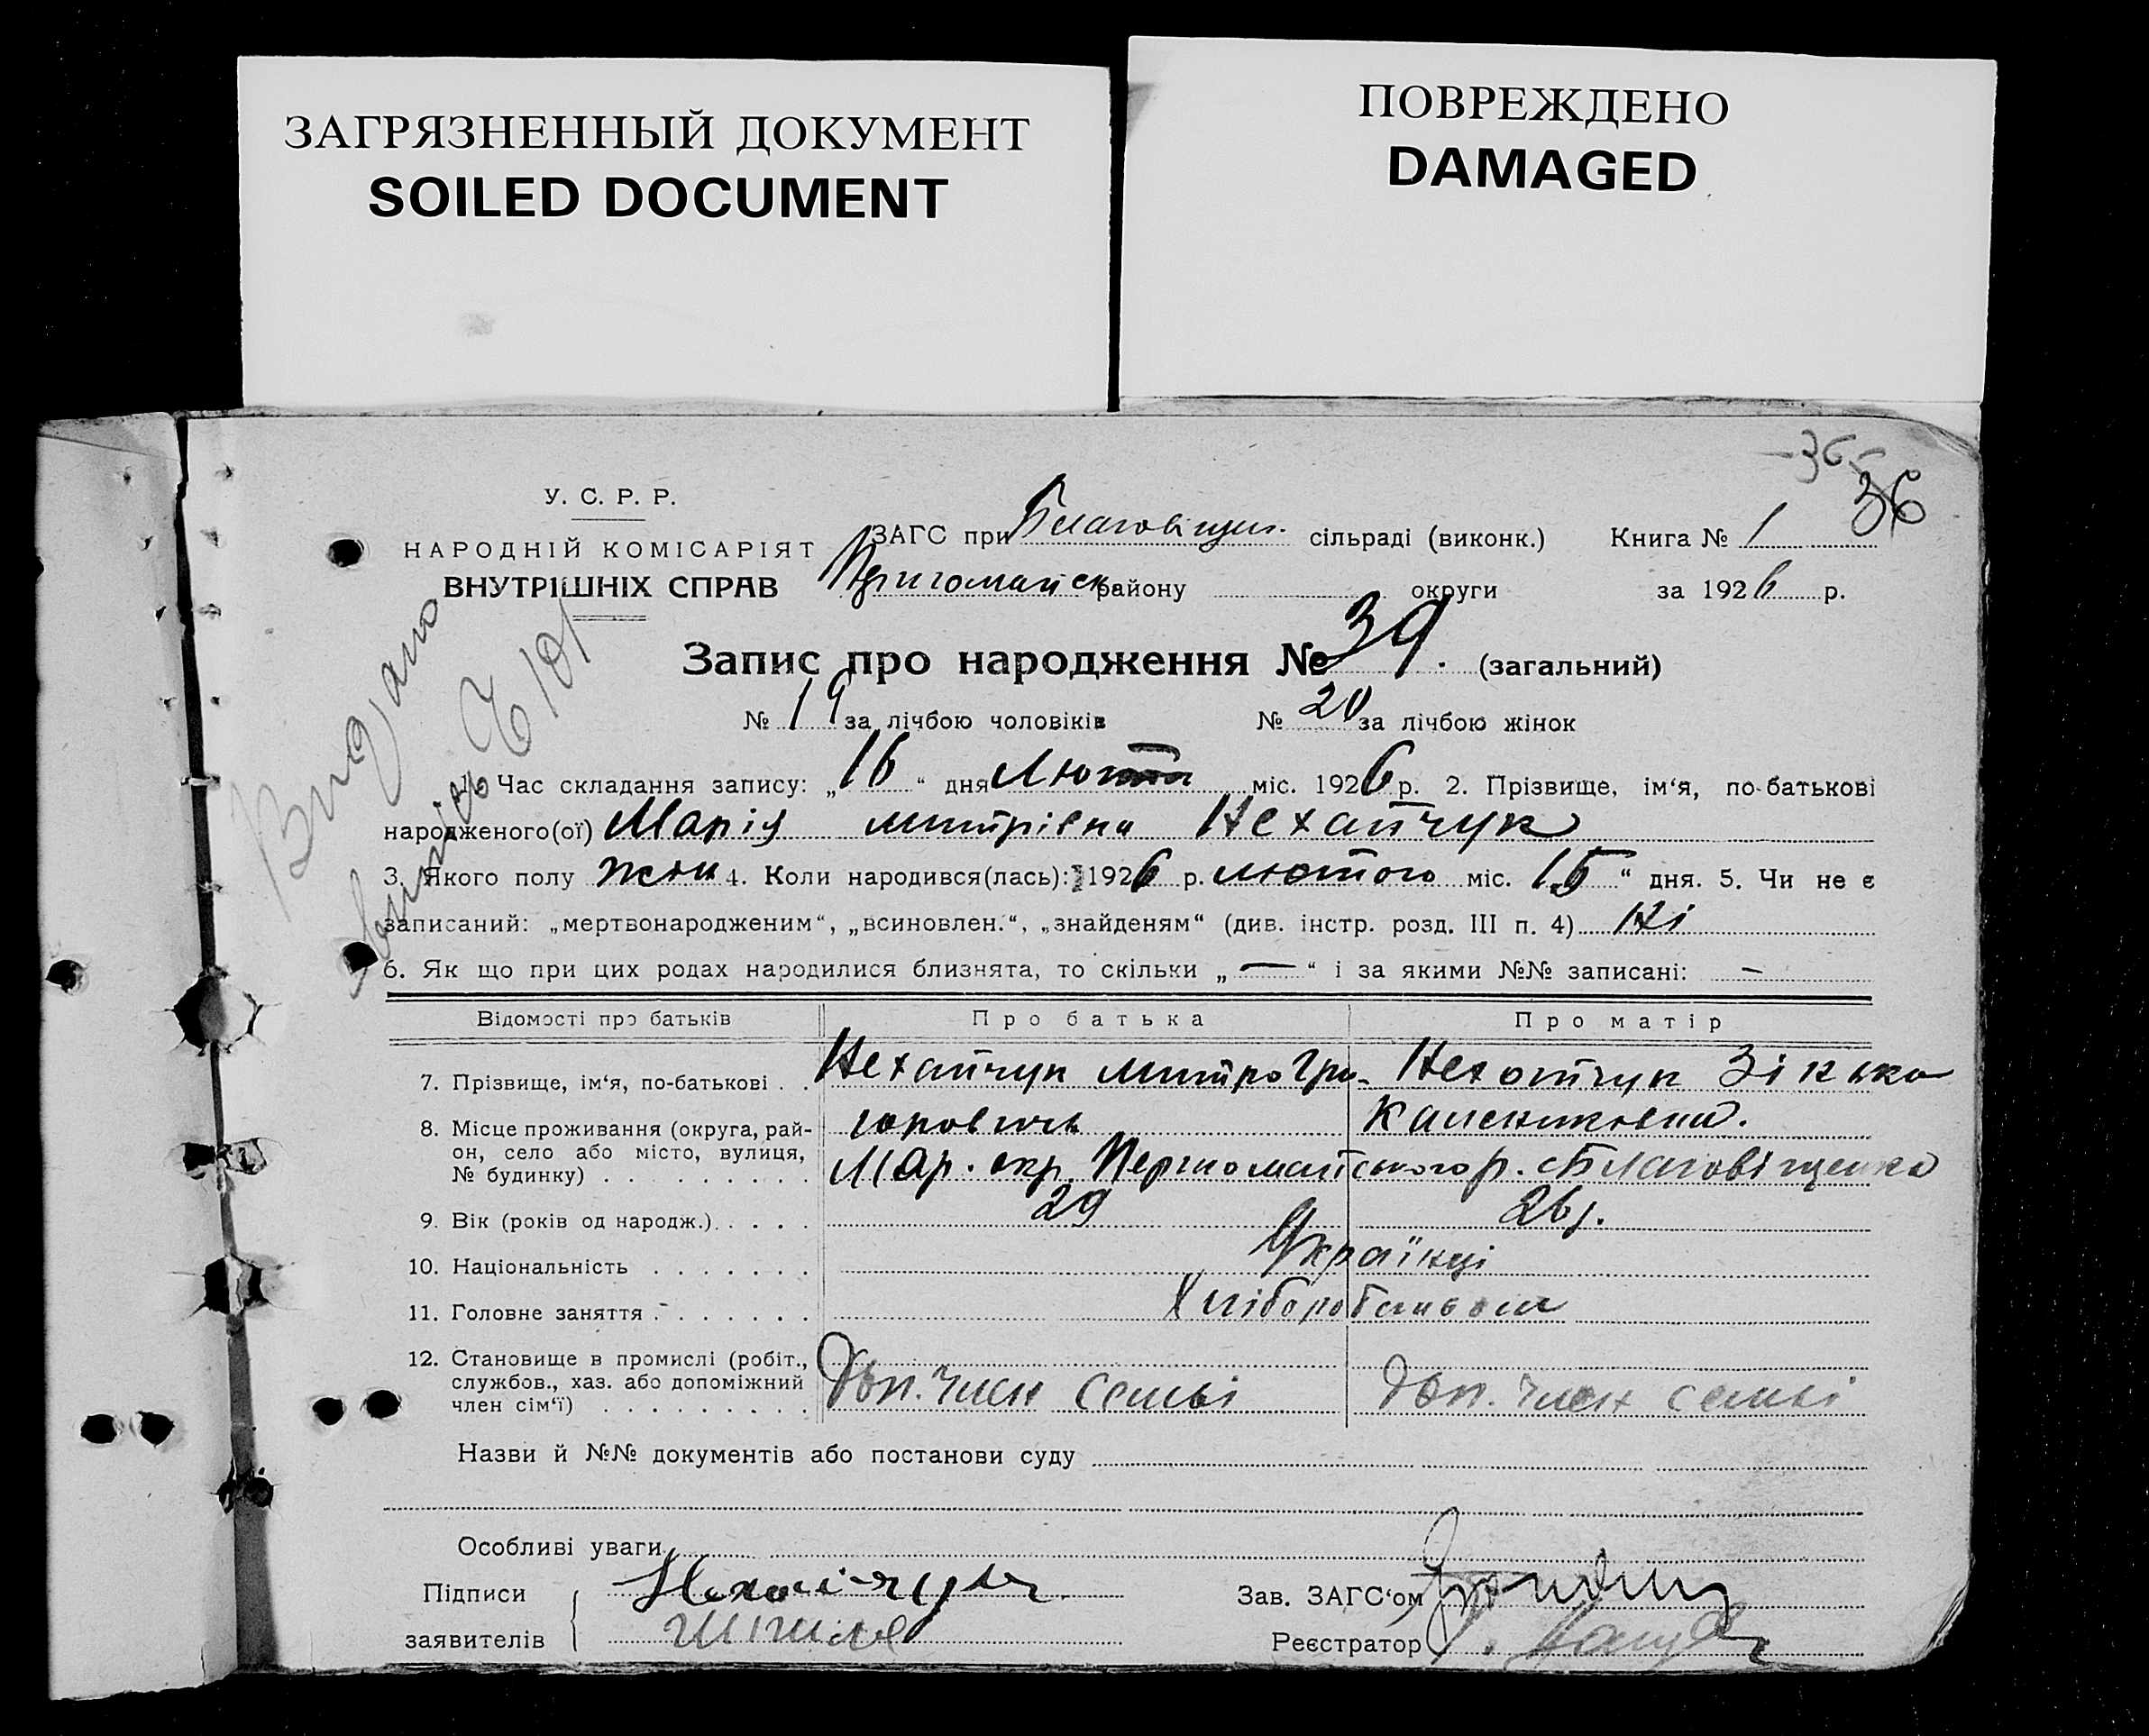 ЗАГРЯЗНЕННЫЙ ДОКУМЕНТ
SOILED DOCUMENT
ПОВРЕЖДЕНО
DAMAGED
-36-
36
У. С. Р. Р.
НАРОДНІЙ КОМІСАРІЯТ
ВНУТРІШНІХ СПРАВ
ЗАГС при Благовіщен. сільраді (виконк.) Книга № 1
району округи за 1926 р.
Запис про народження № 39. (загальний)
№ 19 за лічбою чоловіків № 20 за лічбою жінок
Видано
1. Час складання запису: „16“ дня Люта міс. 1926 р. 2. Прізвище, ім‘я, по-батькові
народженого(ої) Марія митрівна Нехайчук
3. Якого полу жен 4. Коли народився(лась): 1926 р. лютого міс. 15“ дня. 5. Чи не є
записаний: „мертвонародженим“, „всиновлен.“, „знайденям“ (див. інстр. розд. III п. 4) Ні
6. Як що при цих родах народилися близнята, то скільки „—“ і за якими №№ записані: —
Відомості про батьків Про батька Про матір
7. Прізвище, ім‘я, по-батькові . . Нехайчук митро Гри- Нехайчук Зінька
горовичь Калениковна.
8. Місце проживання (округа, рай-
он, село або місто, вулиця,
№ будинку) . . . . . . . . . Мар. окр. Першомайського р. с Благовіщенка
9. Вік (років од народж.) . . . . 29 26 р.
10. Національність . . . . . . . Українці
11. Головне заняття . . . . . . . Хліборобством
12. Становище в промислі (робіт.,
службов., хаз. або допоміжний
член сім‘ї) . . . . . . . . . Доп. член семьі Доп. член семьі
Назви й №№ документів або постанови суду
Особливі уваги
Підписи
заявителів
Зав. ЗАГС‘ом
Реєстратор